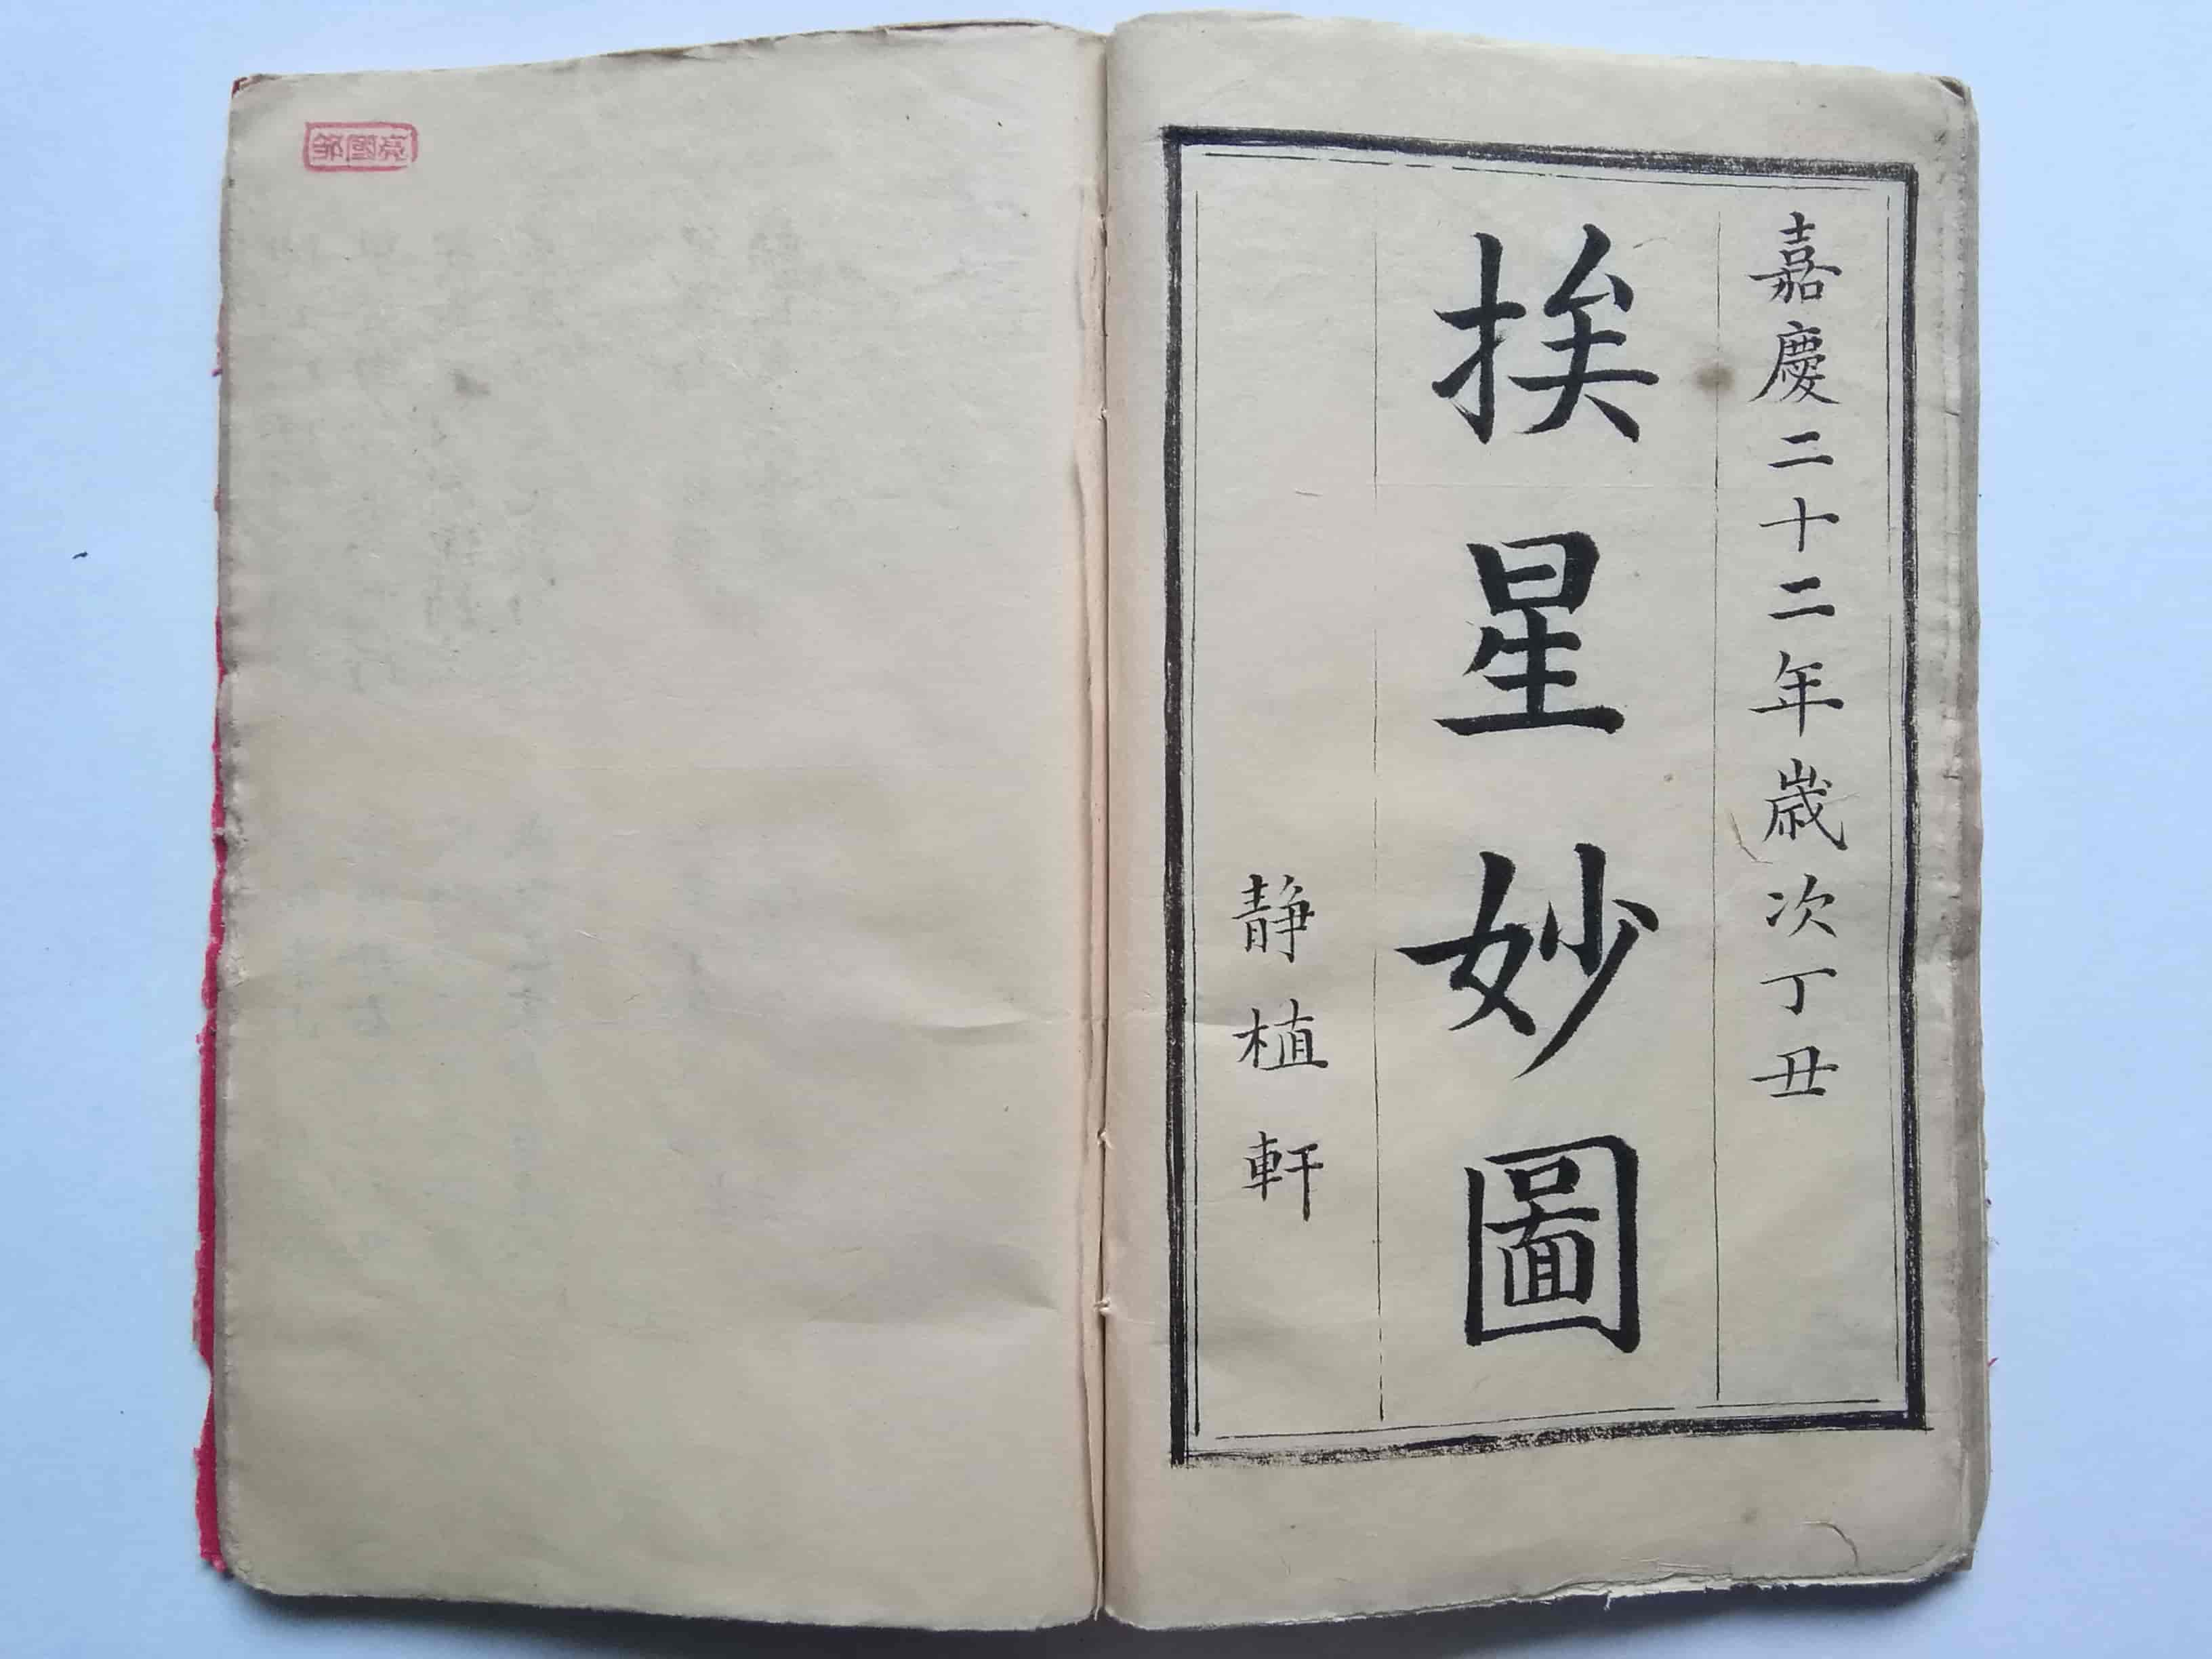 嘉慶二十二年歲次丁丑
挨星妙圖
靜植軒
鄒國亮